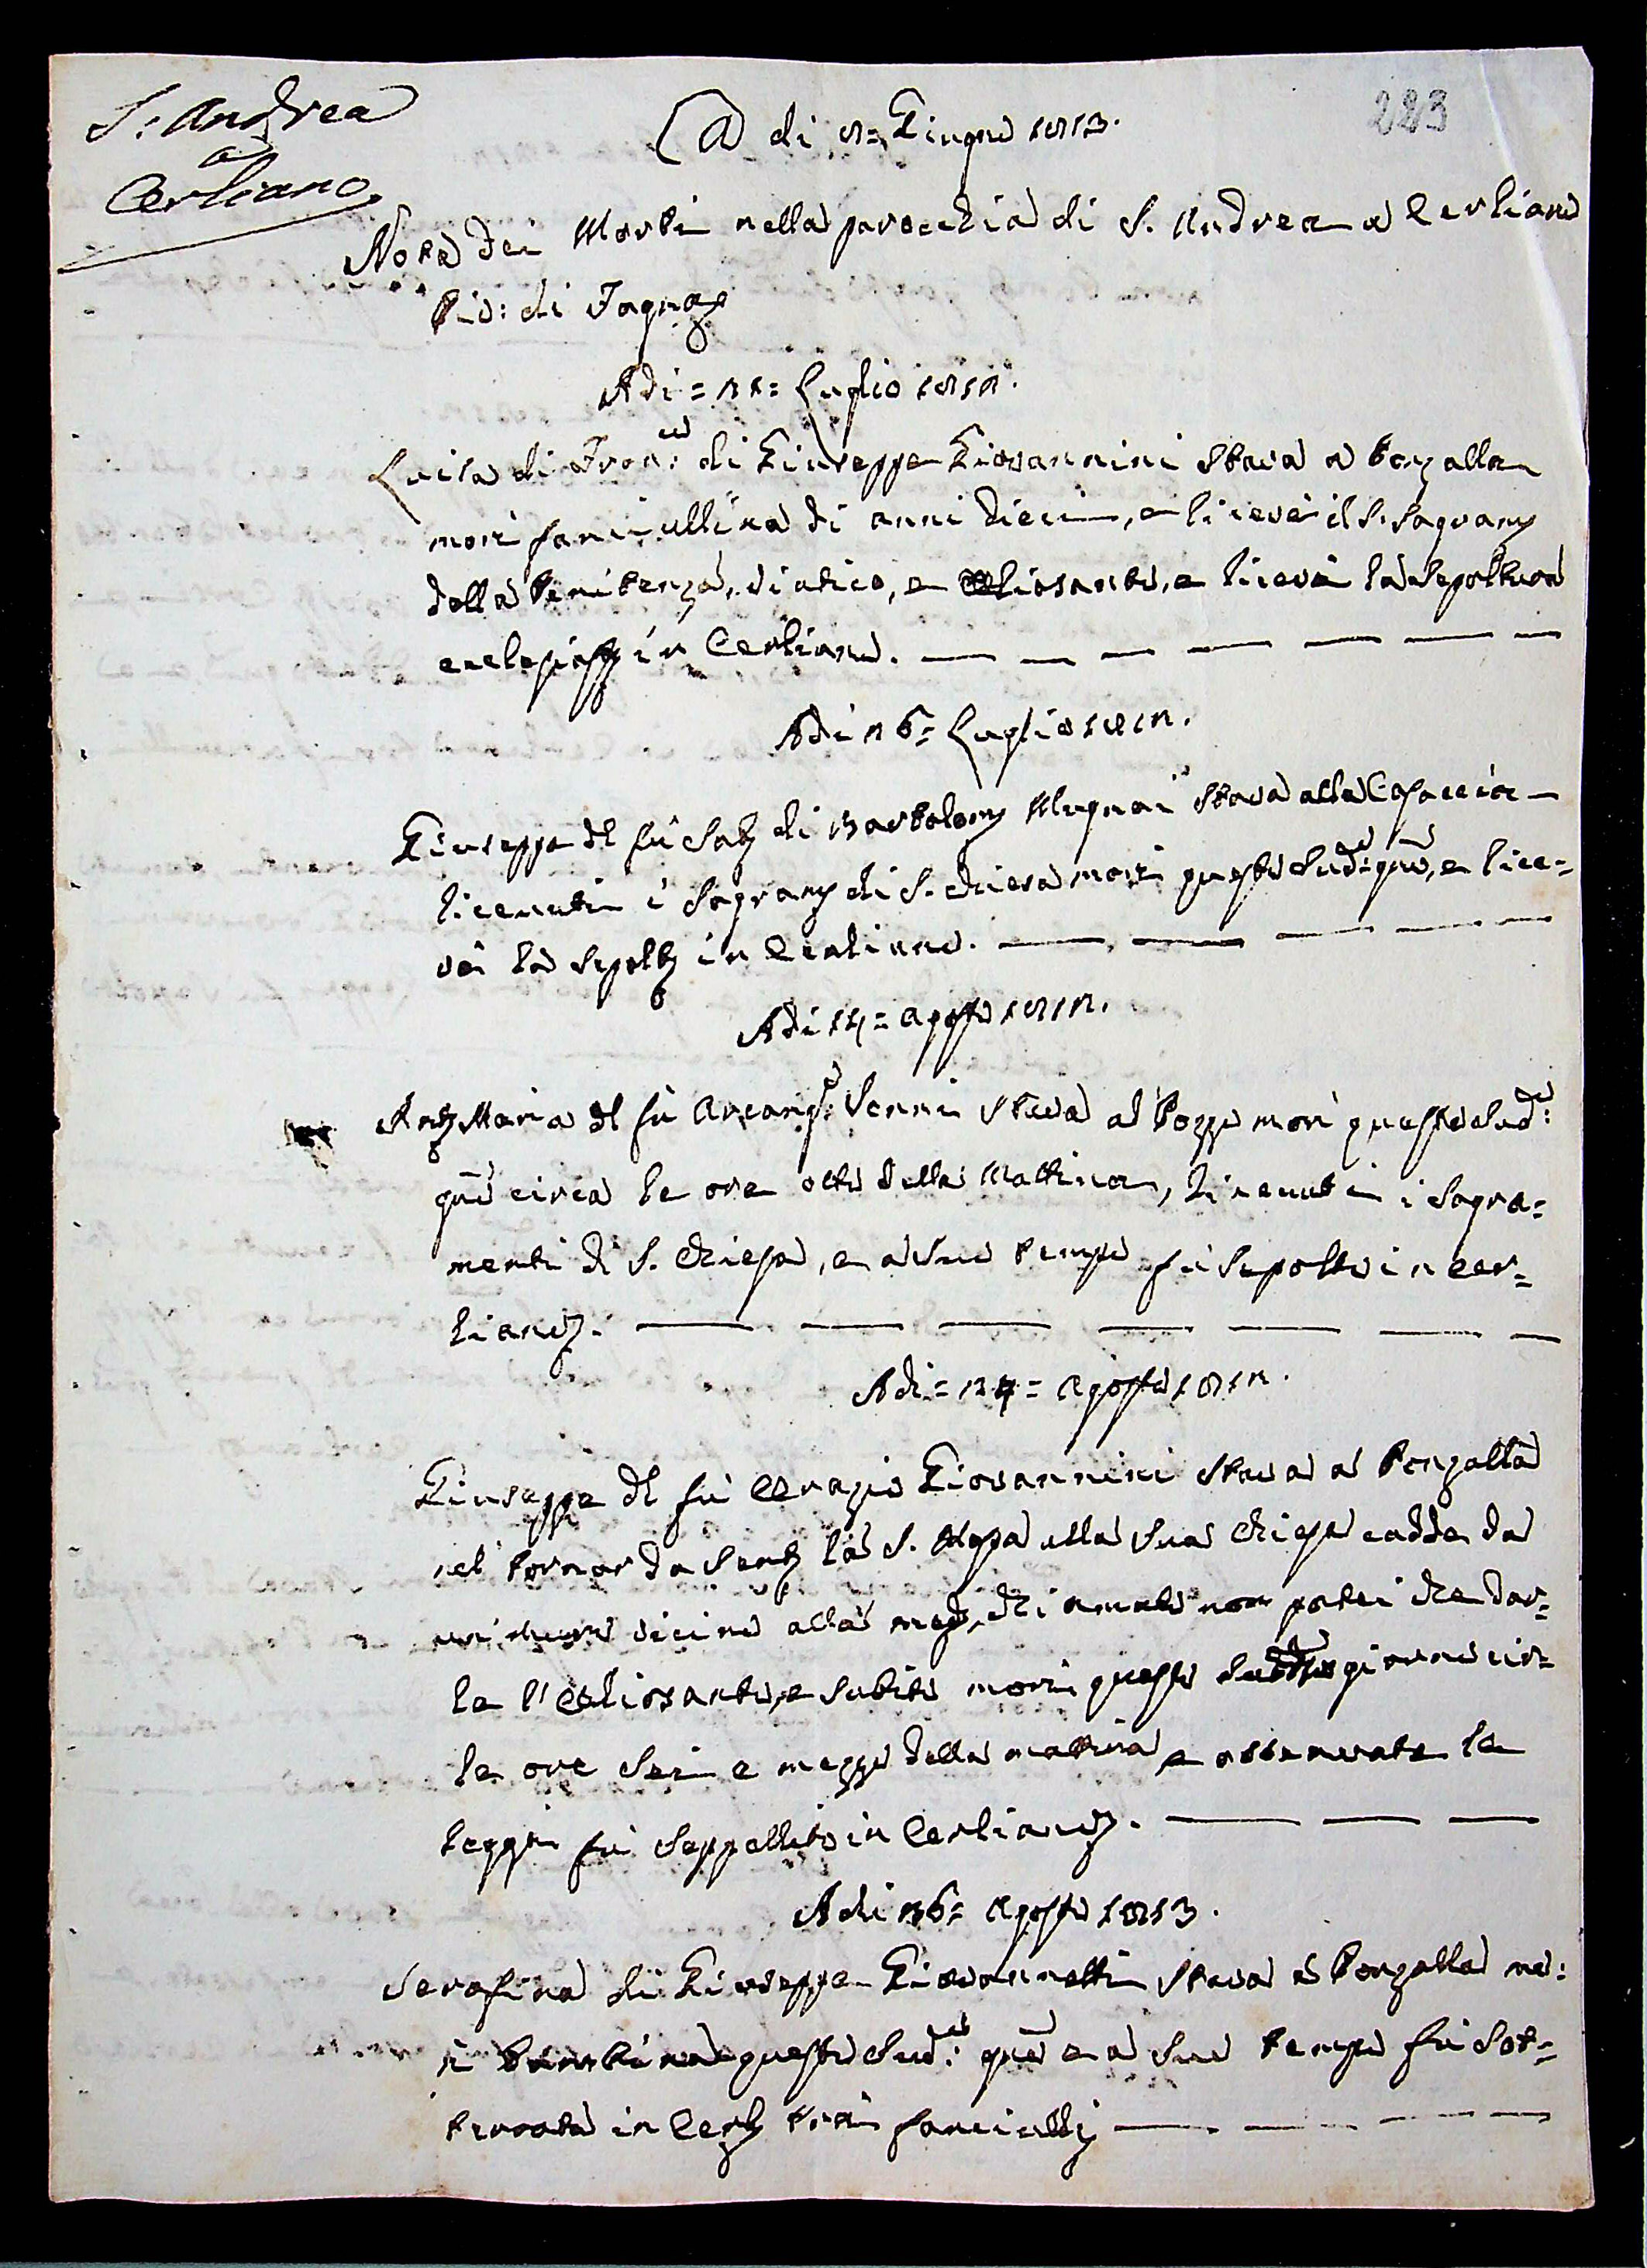 S: Andrea
a
Cerliano
223
A di 8= Giugno 1813.
Nota dei Morti nella parocchia di S. Andrea a Cerliano
Pid: di Fagna
Adi = 21= Luglio 1812.
Luisa di Fran:co di Giuseppe Giovannini stava a Ponzalla
morì fanciullina di anni dieci, e licevè il S. Sagram
della Penitenza, viatico, e Oliosanto, e licevè la Sepoltura
ecclesiast in Cerliano.
Adi 26= Luglio 1812.
Giuseppe del fù Salv di Bartolom Mugnai stava alla Casaccia
licevuti i Sagram di S. Chiesa morì questo Sud:o gno, e lice=
vè la Sepolt in Cerliano.
Adi 14= Agosto 1812.
Ant Maria del fù Arcang:o Senni stava al Pozzo morì questo Sud:o
gno circa le ore otto della Mattina, licevuti i Sagra=
menti di S. Chiesa, e a suo tempo fù Sepolto in Cer=
liano.
Adi = 24 = Agosto 1812.
Giuseppe del fù Orazio Giovannini stava a Ponzalla
nel tornar da Sent la S. Messa alla Sua Chiesa cadde da
un muro vicino alla med, chiamato non potei che dar=
le l'Oliosanto, e subito morì questo Suddto giorno cir=
le ore Sei e mezzo della mattina e osservate le
leggi fù Seppellito in Cerliano.
Adi 26= Agosto 1813.
Serafina di Giuseppe Giovannetti stava a Ponzalla mo:
ri bambina questo Sud:o gno e a suo tempo fù Sot=
terrata in Cerl tra i fanciulli